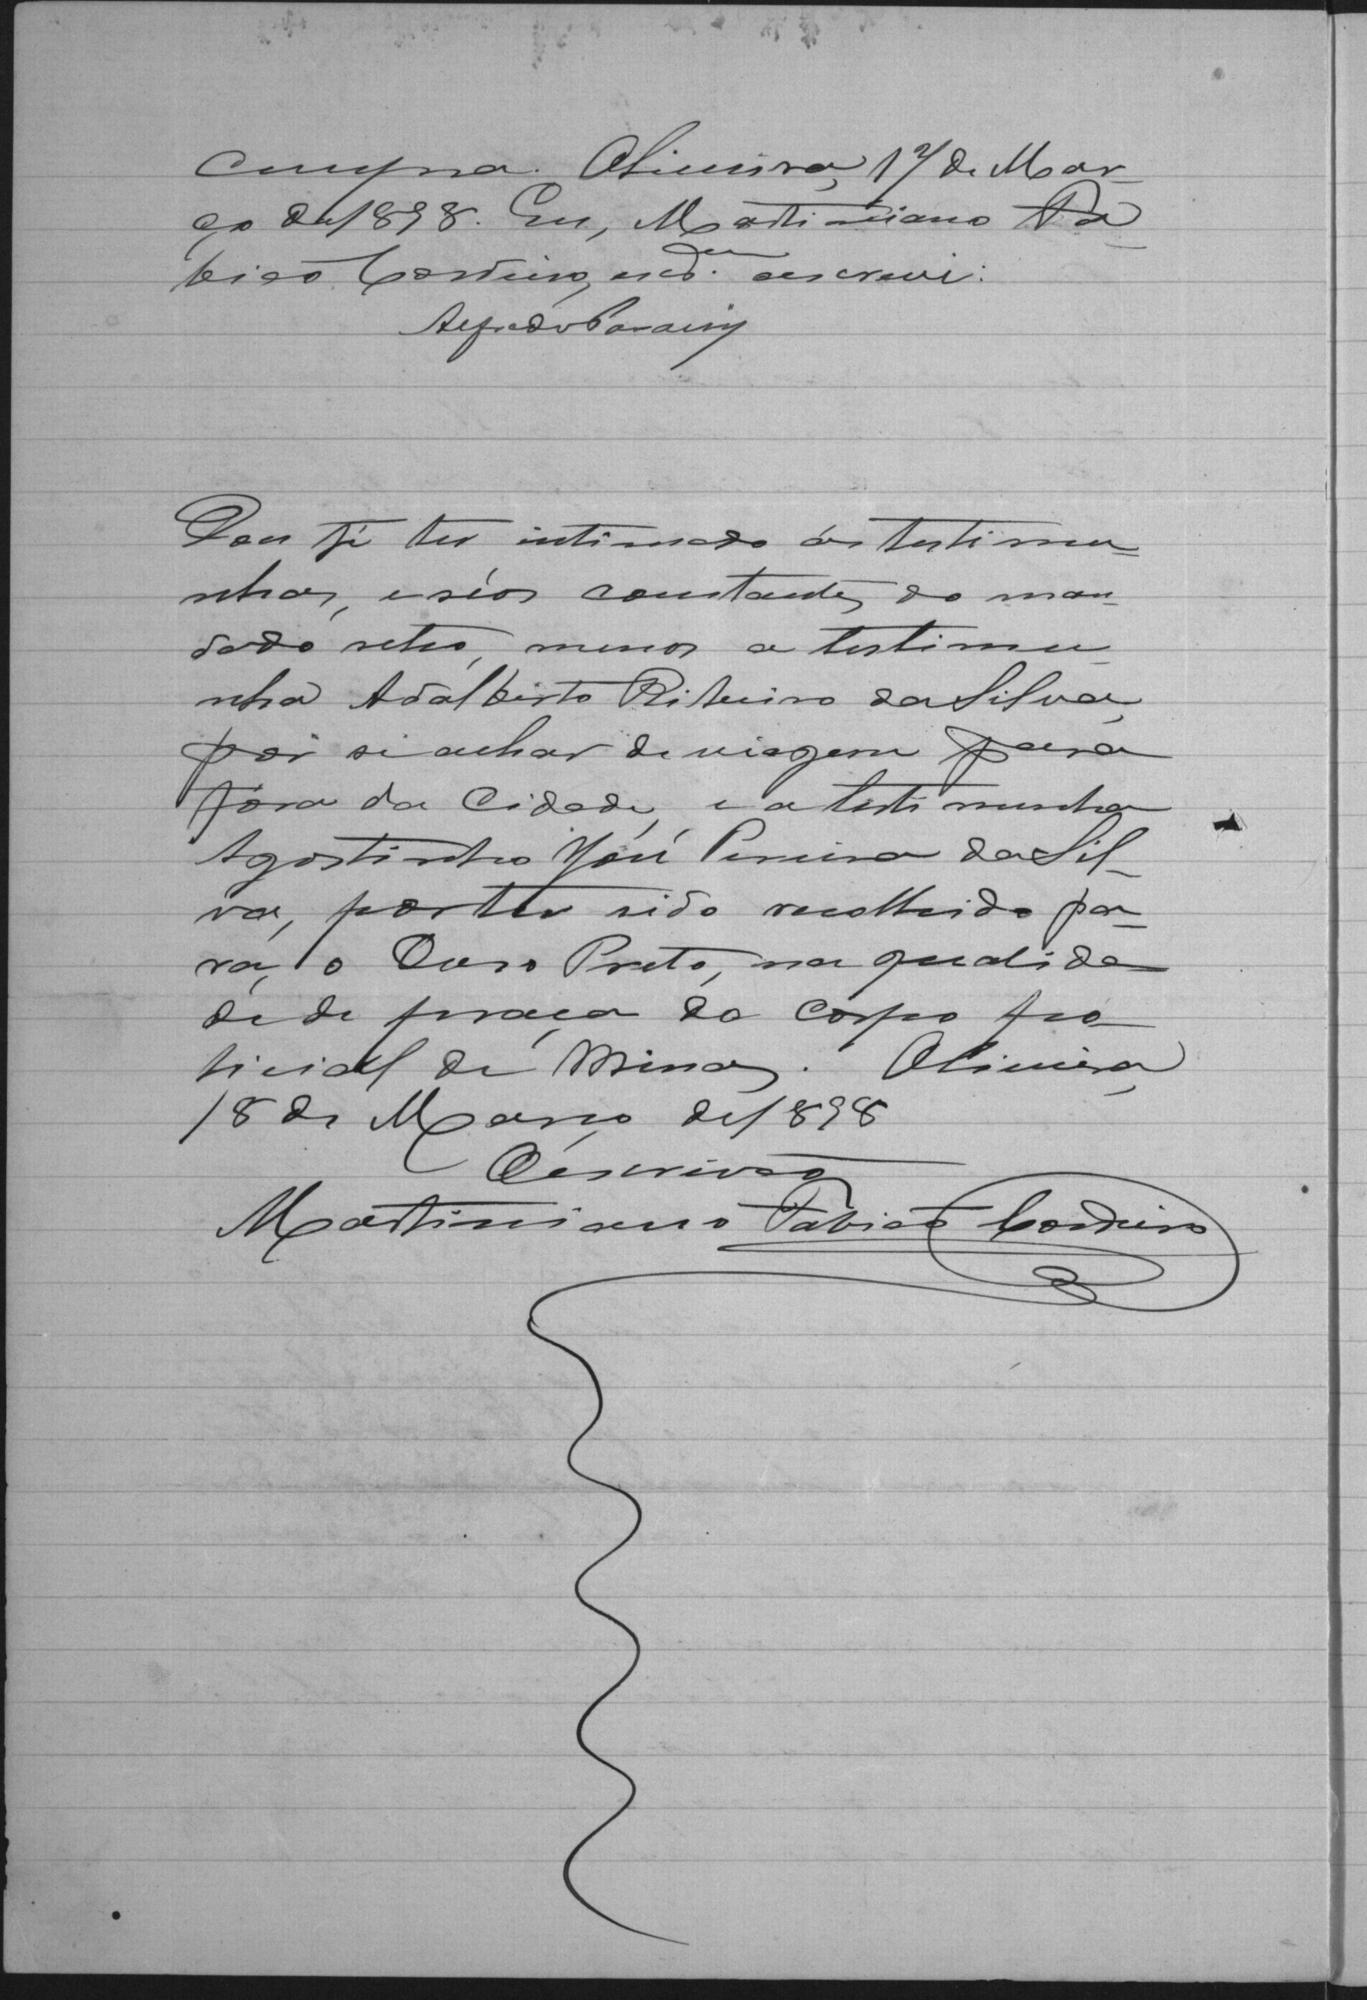 cumpra. Oliveira, 17 de Mar-
ço de 1898. Eu, Martiniano Fa-
bião Cordeiro, escr.am o escrevi.
Alfredo
Dou fé ter intimado ás testimu-
nhas, e réos constantes do man-
dado retro, menos a testimu-
nha Adalberto Ribeiro da Silva,
por si achar de viagem para
fóra da Cidade, e a testimunha
Agostinho José Pereira da Sil-
va, por ter sido recolhido pa-
ra, o Ouro Preto, na qualida
de de praça do corpo po
licial de Minas. Oliveira,
18 de Março de 1898
O escrivão
Martiniano Fabião Cordeiro